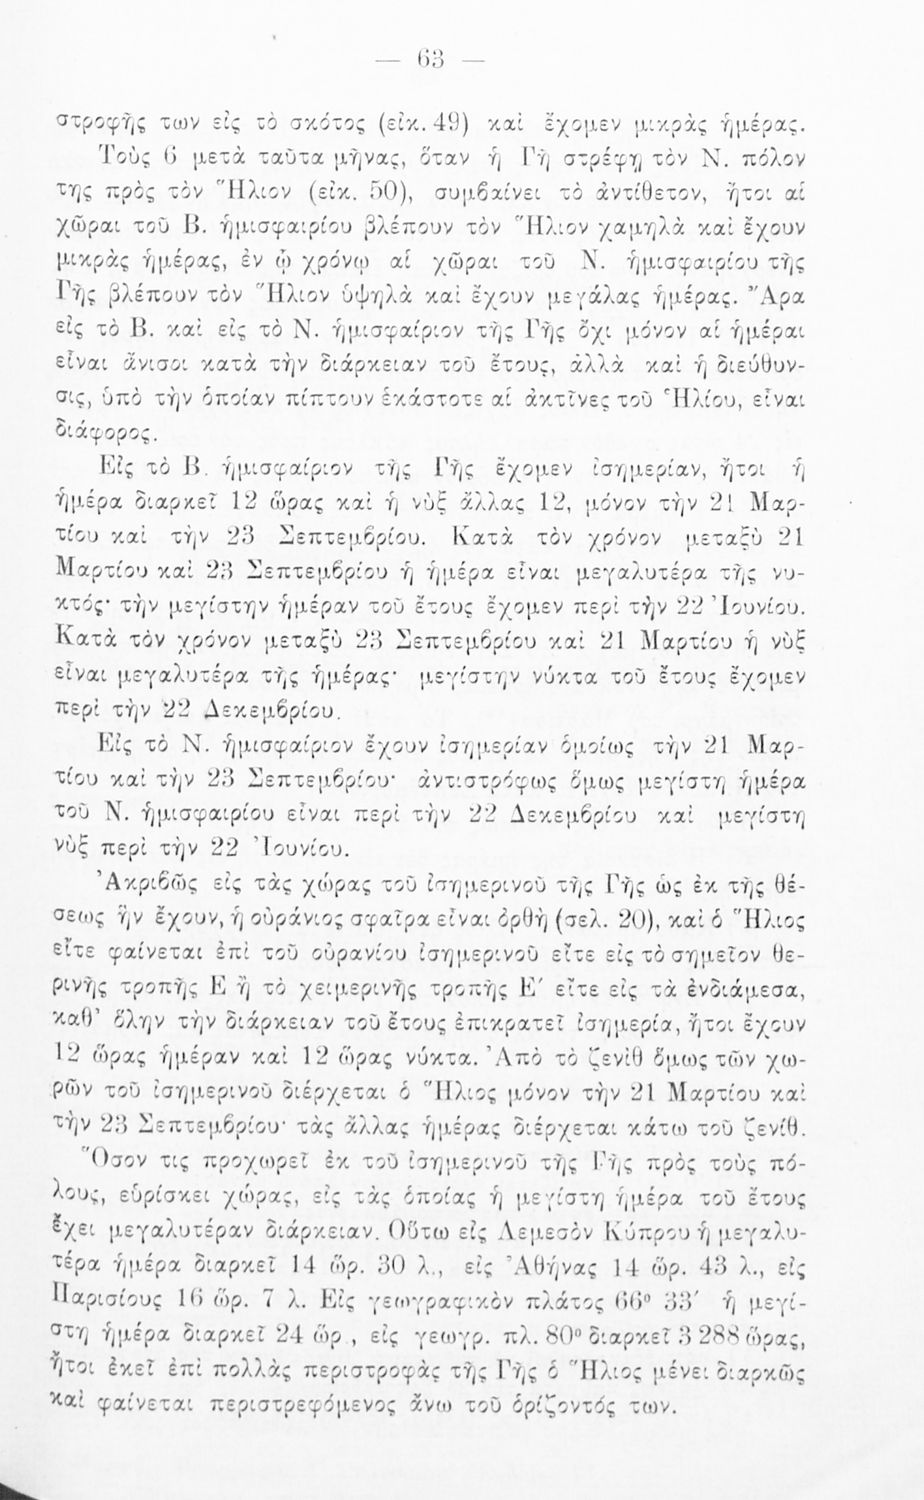 — 63 —
στροφῆς των εἰς τὸ σκότος (εἰκ. 49) καὶ ἔχομεν μικρὰς ἡμέρας.
Τοὺς 6 μετὰ ταῦτα μῆνας, ὅταν ἡ Γῆ στρέφῃ τὸν Ν. πόλον
της πρὸς τὸν Ἥλιον (εἰκ. 50), συμβαίνει τὸ ἀντίθετον, ἤτοι αἱ
χῶραι τοῦ Β. ἡμισφαιρίου βλέπουν τὸν Ἥλιον χαμηλὰ καὶ ἔχουν
μικρὰς ἡμέρας, ἐν ᾧ χρόνῳ αἱ χῶραι τοῦ Ν. ἡμισφαιρίου τῆς
Γῆς βλέπουν τὸν Ἥλιον ὑψηλὰ καὶ ἔχουν μεγάλας ἡμέρας. Ἄρα
εἰς τὸ Β. καὶ εἰς τὸ Ν. ἡμισφαίριον τῆς Γῆς ὄχι μόνον αἱ ἡμέραι
εἶναι ἄνισοι κατὰ τὴν διάρκειαν τοῦ ἔτους, ἀλλὰ καὶ ἡ διεύθυν-
σις, ὑπὸ τὴν ὁποίαν πίπτουν ἑκάστοτε αἱ ἀκτῖνες τοῦ Ἡλίου, εἶναι
διάφορος.
Εἰς τὸ Β. ἡμισφαίριον τῆς Γῆς ἔχομεν ἰσημερίαν, ἤτοι ἡ
ἡμέρα διαρκεῖ 12 ὥρας καὶ ἡ νὺξ ἄλλας 12, μόνον τὴν 21 Μαρ-
τίου καὶ τὴν 23 Σεπτεμβρίου. Κατὰ τὸν χρόνον μεταξὺ 21
Μαρτίου καὶ 23 Σεπτεμβρίου ἡ ἡμέρα εἶναι μεγαλυτέρα τῆς νυ-
κτός· τὴν μεγίστην ἡμέραν τοῦ ἔτους ἔχομεν περὶ τὴν 22 Ἰουνίου.
Κατὰ τὸν χρόνον μεταξὺ 23 Σεπτεμβρίου καὶ 21 Μαρτίου ἡ νὺξ
εἶναι μεγαλυτέρα τῆς ἡμέρας· μεγίστην νύκτα τοῦ ἔτους ἔχομεν
περὶ τὴν 22 Δεκεμβρίου.
Εἰς τὸ Ν. ἡμισφαίριον ἔχουν ἰσημερίαν ὁμοίως τὴν 21 Μαρ-
τίου καὶ τὴν 23 Σεπτεμβρίου· ἀντιστρόφως ὅμως μεγίστη ἡμέρα
τοῦ Ν. ἡμισφαιρίου εἶναι περὶ τὴν 22 Δεκεμβρίου καὶ μεγίστη
νὺξ περὶ τὴν 22 Ἰουνίου.
Ἀκριβῶς εἰς τὰς χώρας τοῦ ἰσημερινοῦ τῆς Γῆς ὡς ἐκ τῆς θέ-
σεως ἣν ἔχουν, ἡ οὐράνιος σφαῖρα εἶναι ὀρθὴ (σελ. 20), καὶ ὁ Ἥλιος
εἴτε φαίνεται ἐπὶ τοῦ οὐρανίου ἰσημερινοῦ εἴτε εἰς τὸ σημεῖον θε-
ρινῆς τροπῆς Ε ἢ τὸ χειμερινῆς τροπῆς Ε′ εἴτε εἰς τὰ ἐνδιάμεσα,
καθ’ ὅλην τὴν διάρκειαν τοῦ ἔτους ἐπικρατεῖ ἰσημερία, ἤτοι ἔχουν
12 ὥρας ἡμέραν καὶ 12 ὥρας νύκτα. Ἀπὸ τὸ ζενὶθ ὅμως τῶν χω-
ρῶν τοῦ ἰσημερινοῦ διέρχεται ὁ Ἥλιος μόνον τὴν 21 Μαρτίου καὶ
τὴν 23 Σεπτεμβρίου· τὰς ἄλλας ἡμέρας διέρχεται κάτω τοῦ ζενίθ.
Ὅσον τις προχωρεῖ ἐκ τοῦ ἰσημερινοῦ τῆς Γῆς πρὸς τοὺς πό-
λους, εὑρίσκει χώρας, εἰς τὰς ὁποίας ἡ μεγίστη ἡμέρα τοῦ ἔτους
ἔχει μεγαλυτέραν διάρκειαν. Οὕτω εἰς Λεμεσὸν Κύπρου ἡ μεγαλυ-
τέρα ἡμέρα διαρκεῖ 14 ὥρ. 30 λ., εἰς Ἀθήνας 14 ὥρ. 43 λ., εἰς
Παρισίους 16 ὥρ. 7 λ. Εἰς γεωγραφικὸν πλάτος 66° 33′ ἡ μεγί-
στη ἡμέρα διαρκεῖ 24 ὥρ., εἰς γεωγρ. πλ. 80° διαρκεῖ 3 288 ὥρας,
ἤτοι ἐκεῖ ἐπὶ πολλὰς περιστροφὰς τῆς Γῆς ὁ Ἥλιος μένει διαρκῶς
καὶ φαίνεται περιστρεφόμενος ἄνω τοῦ ὁρίζοντός των.